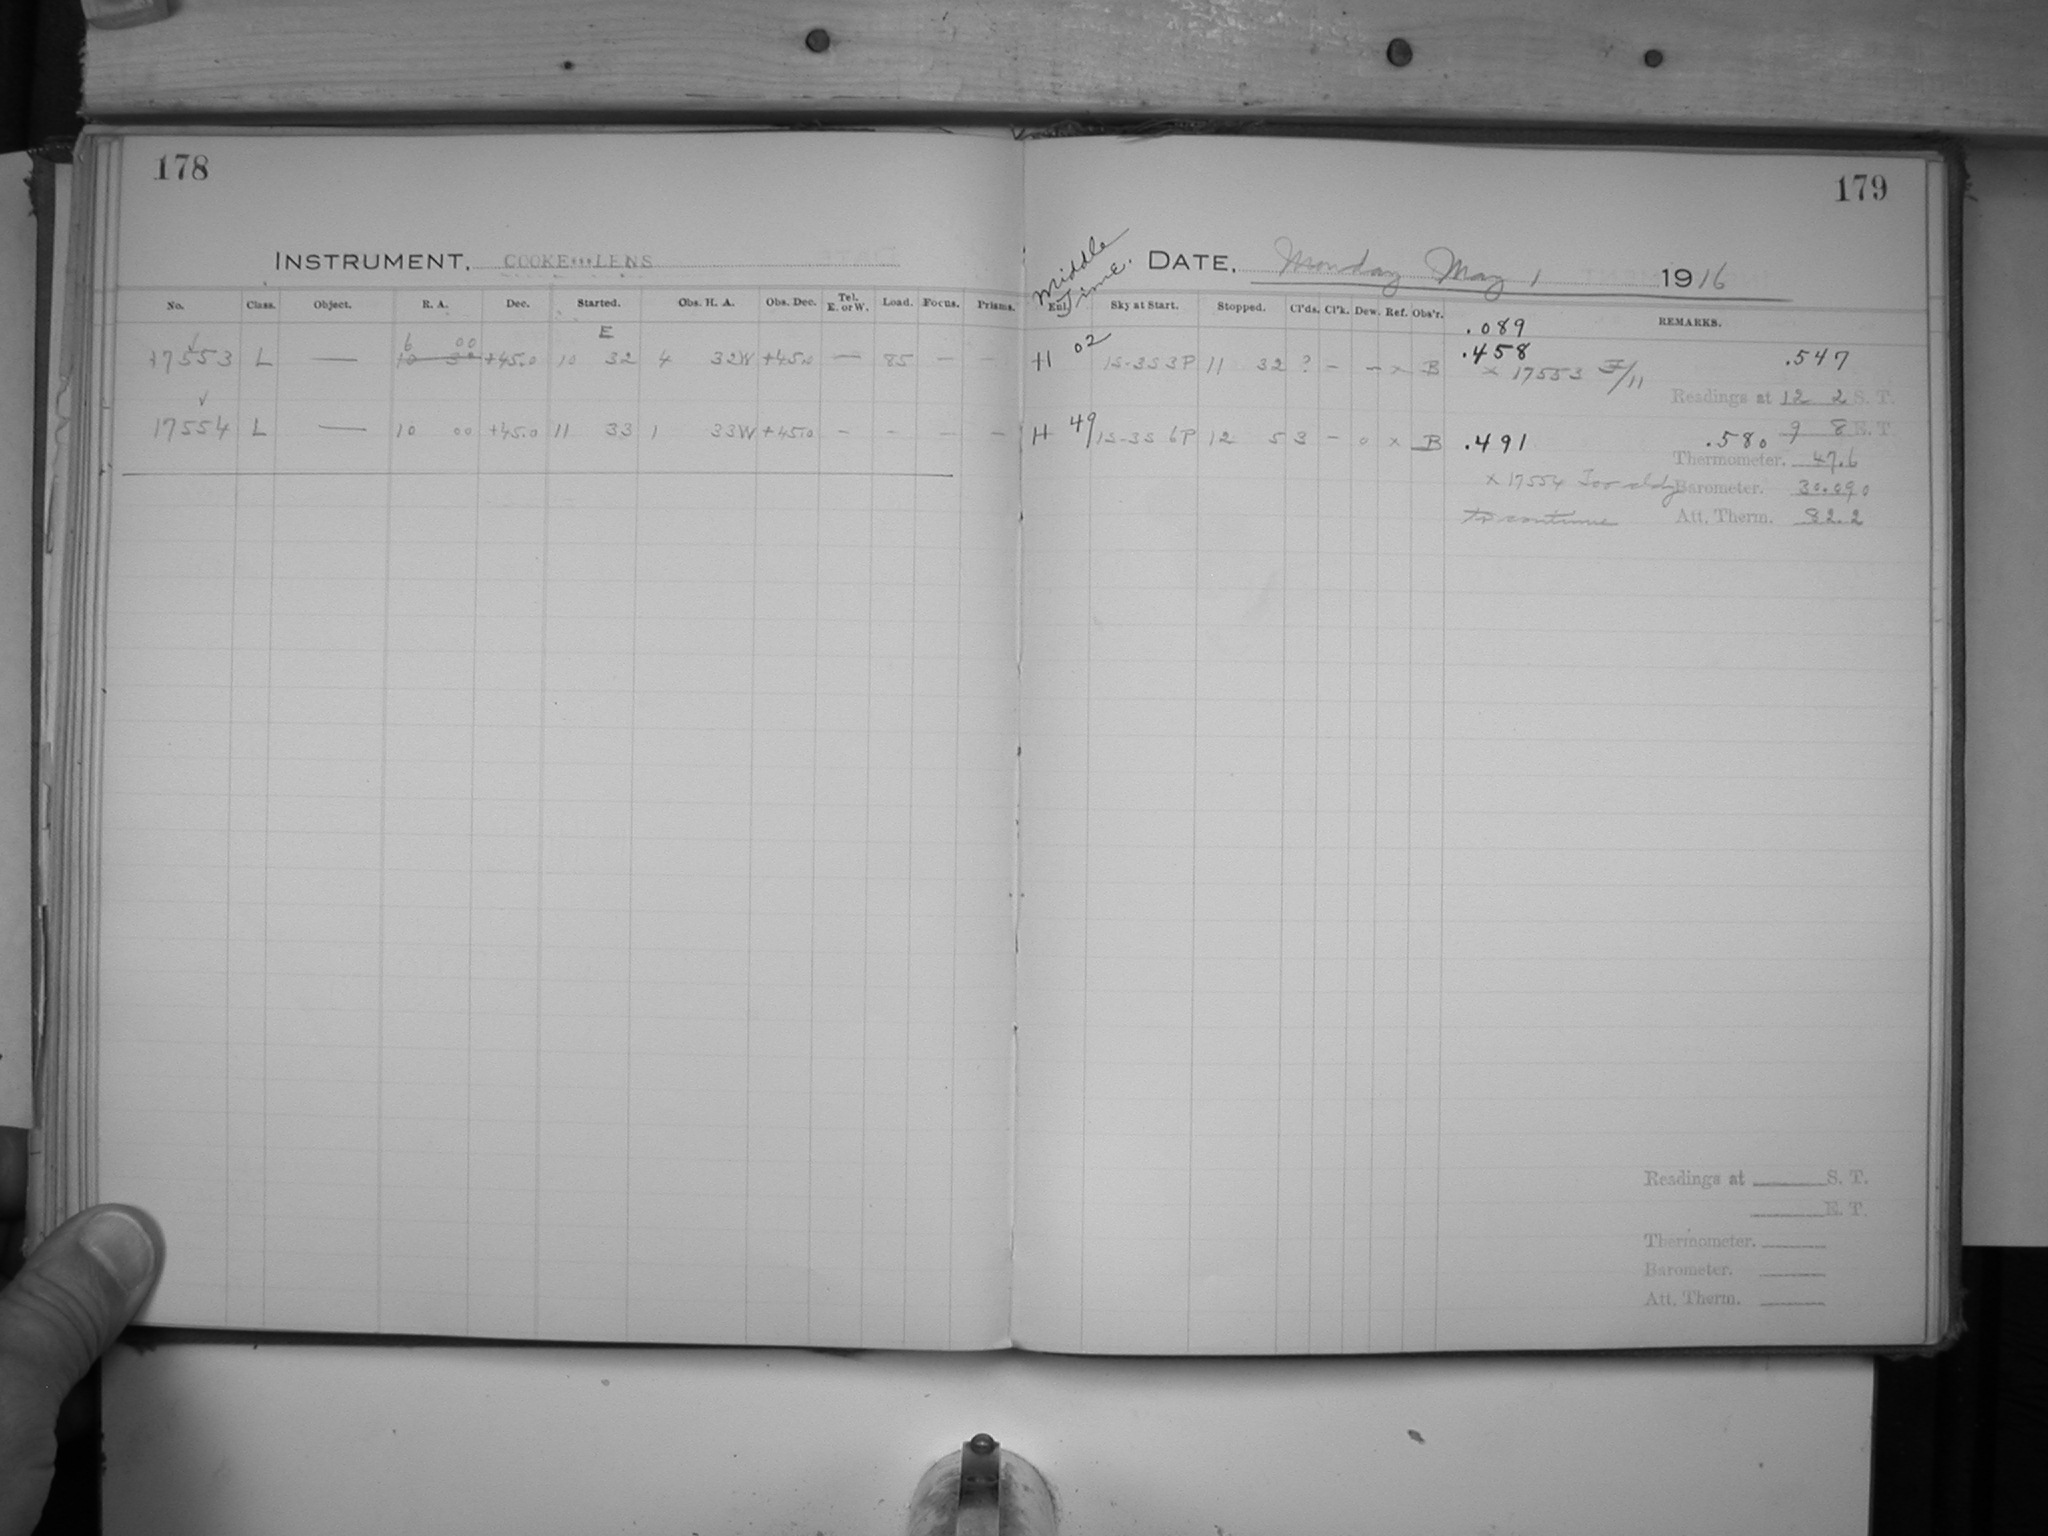 178
179
INSTRUMENT, COOKE LENS
Middle Time.
DATE, Monday May 1 1916
No. Class. Object. R. A. Dec. Started. Obs. H. A. Obs. Dec. Tel. E. or W. Load. Focus. Prisms.
Enl. Sky at Start. Stopped. Cl'ds. Cl'k. Dew. Ref. Obs'r. REMARKS.
E
6 00
.089
17553 L — 10 30 +45.0 10 32 4 32W +45.0 — 85 — —
H 02 1S-3S 3P 11 32 ? — — x B .458 .547
x 17553 I/11
Readings at 12 2 S. T.
9 8 E. T.
17554 L — 10 00 +45.0 11 33 1 33W +45.0 — — — —
H 49 1S-3S 6P 12 5 3 — 0 x B .491 .580
Thermometer. 47.6
x 17554 Too cldy
Barometer. 30.090
to continue
Att. Therm. 82.2
Readings at S. T.
E. T.
Thermometer.
Barometer.
Att. Therm.